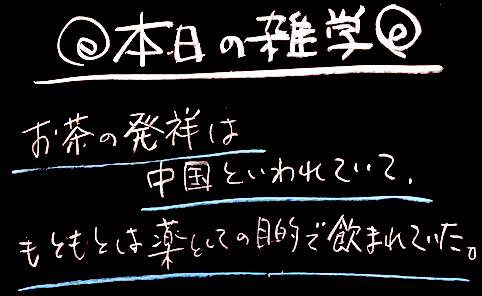 ◎本日の雑学◎
お茶の発祥は
中国といわれていて、
もともとは薬としての目的で飲まれていた。